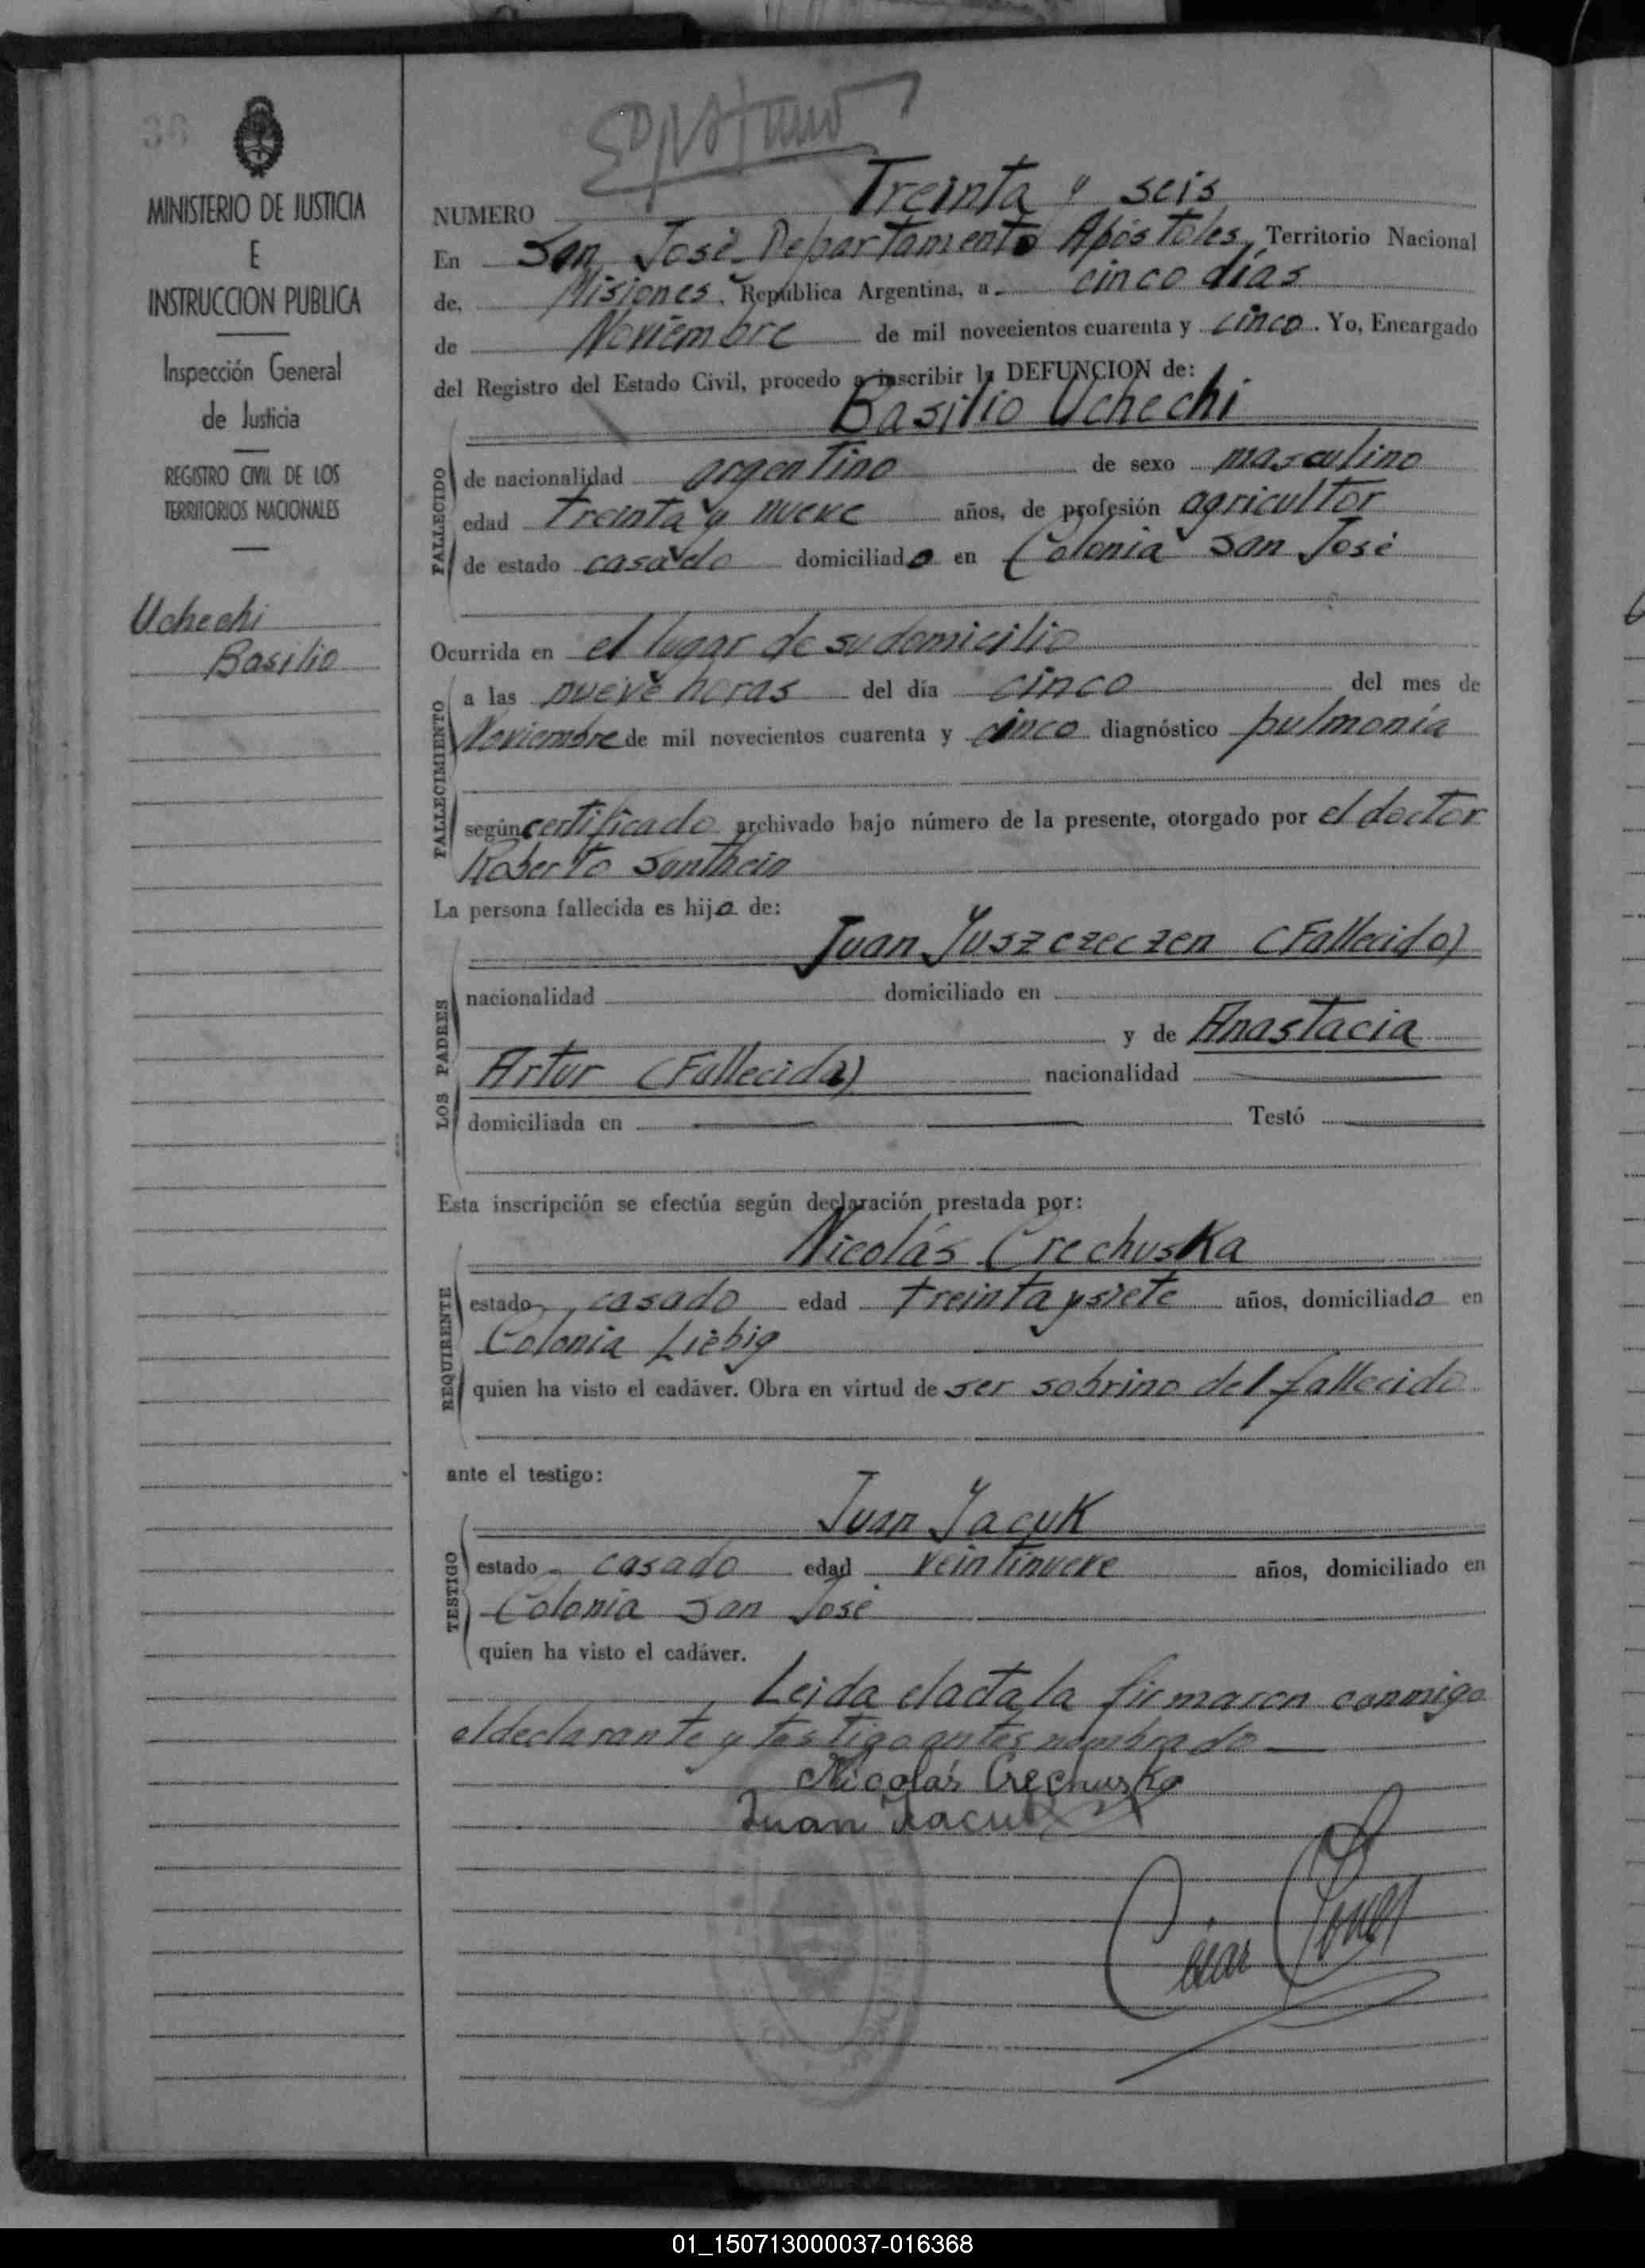 MINISTERIO DE JUSTICIA
E
INSTRUCCION PUBLICA
Inspección General
de Justicia
REGISTRO CIVIL DE LOS
TERRITORIOS NACIONALES
Uchechi
Basilio
NUMERO Treinta y seis
En San José Departamento Apóstoles, Territorio Nacional
de, Misiones, República Argentina, a cinco días
de Noviembre de mil novecientos cuarenta y cinco. Yo, Encargado
del Registro del Estado Civil, procedo a inscribir la DEFUNCION de:
Basilio Uchechi
FALLECIDO
de nacionalidad argentino de sexo masculino
edad treinta y nueve años, de profesión agricultor
de estado casado domiciliado en Colonia San José
Ocurrida en el lugar de su domicilio
FALLECIMIENTO
a las nueve horas del día cinco del mes de
Noviembre de mil novecientos cuarenta y cinco diagnóstico pulmonía
según certificado archivado bajo número de la presente, otorgado por el doctor
Roberto
La persona fallecida es hijo de:
Juan Juszczeczen (Fallecido)
LOS PADRES
nacionalidad domiciliado en
y de Anastacia
Artur (Fallecida) nacionalidad
domiciliada en Testó
Esta inscripción se efectúa según declaración prestada por:
Nicolás Crechuska
REQUIRENTE
estado casado edad treinta y siete años, domiciliado en
Colonia Liebig
quien ha visto el cadáver. Obra en virtud de ser sobrino del fallecido
ante el testigo:
Juan Jacuk
TESTIGO
estado casado edad veintinueve años, domiciliado en
Colonia San José
quien ha visto el cadáver.
Leida el acta la firmaron conmigo
el declarante y testigo antes nombrado
Nicolás Crechuska
Juan Jacuk
01_150713000037-016368